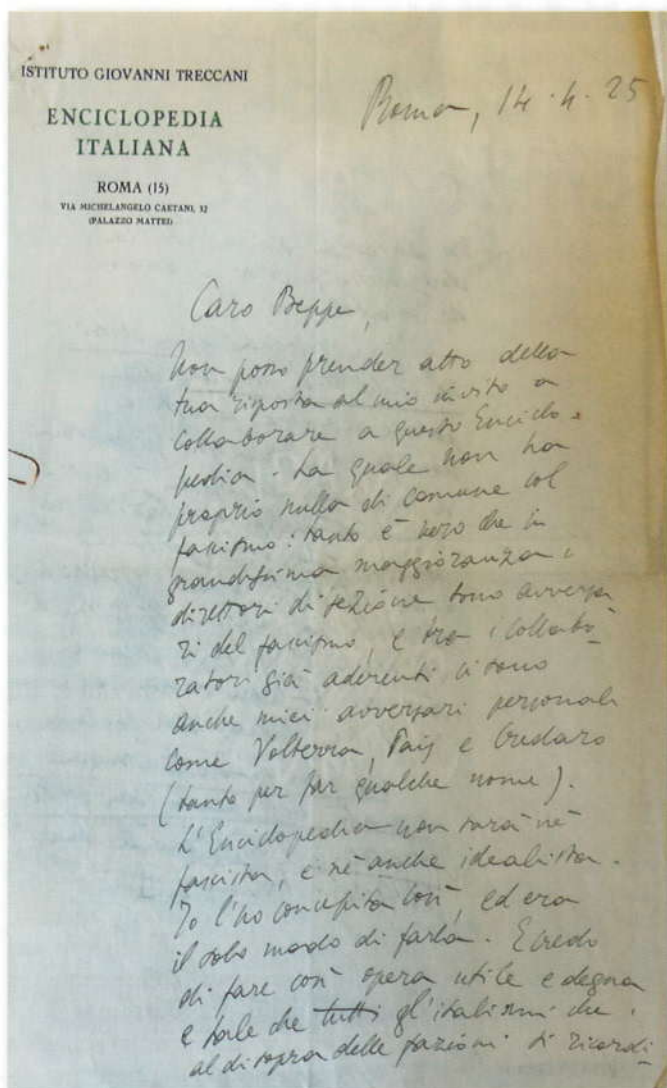 ISTITUTO GIOVANNI TRECCANI
ENCICLOPEDIA
ITALIANA
ROMA (15)
VIA MICHELANGELO CAETANI, 32
(PALAZZO MATTEI)
Roma, 14.4.25
Caro Beppe,
Non posso prender atto della
tua risposta al mio invito a
collaborare a questa Enciclo-
pedia. La quale non ha
proprio nulla di comune col
fascismo: tanto è vero che in
grandissima maggioranza i
direttori di sezione sono avversa
ri del fascismo, e tra i collabo-
ratori già aderenti ci sono
anche miei avversari personali
come Volterra, Pais e Credaro
(tanto per far qualche nome).
L'Enciclopedia non sarà nè
fascista, e nè anche idealista.
Io l'ho concepita così, ed era
il solo modo di farla. E credo
di fare così opera utile e degna
e tale che tutti gl'italiani che
al di sopra delle fazioni si ricordi-